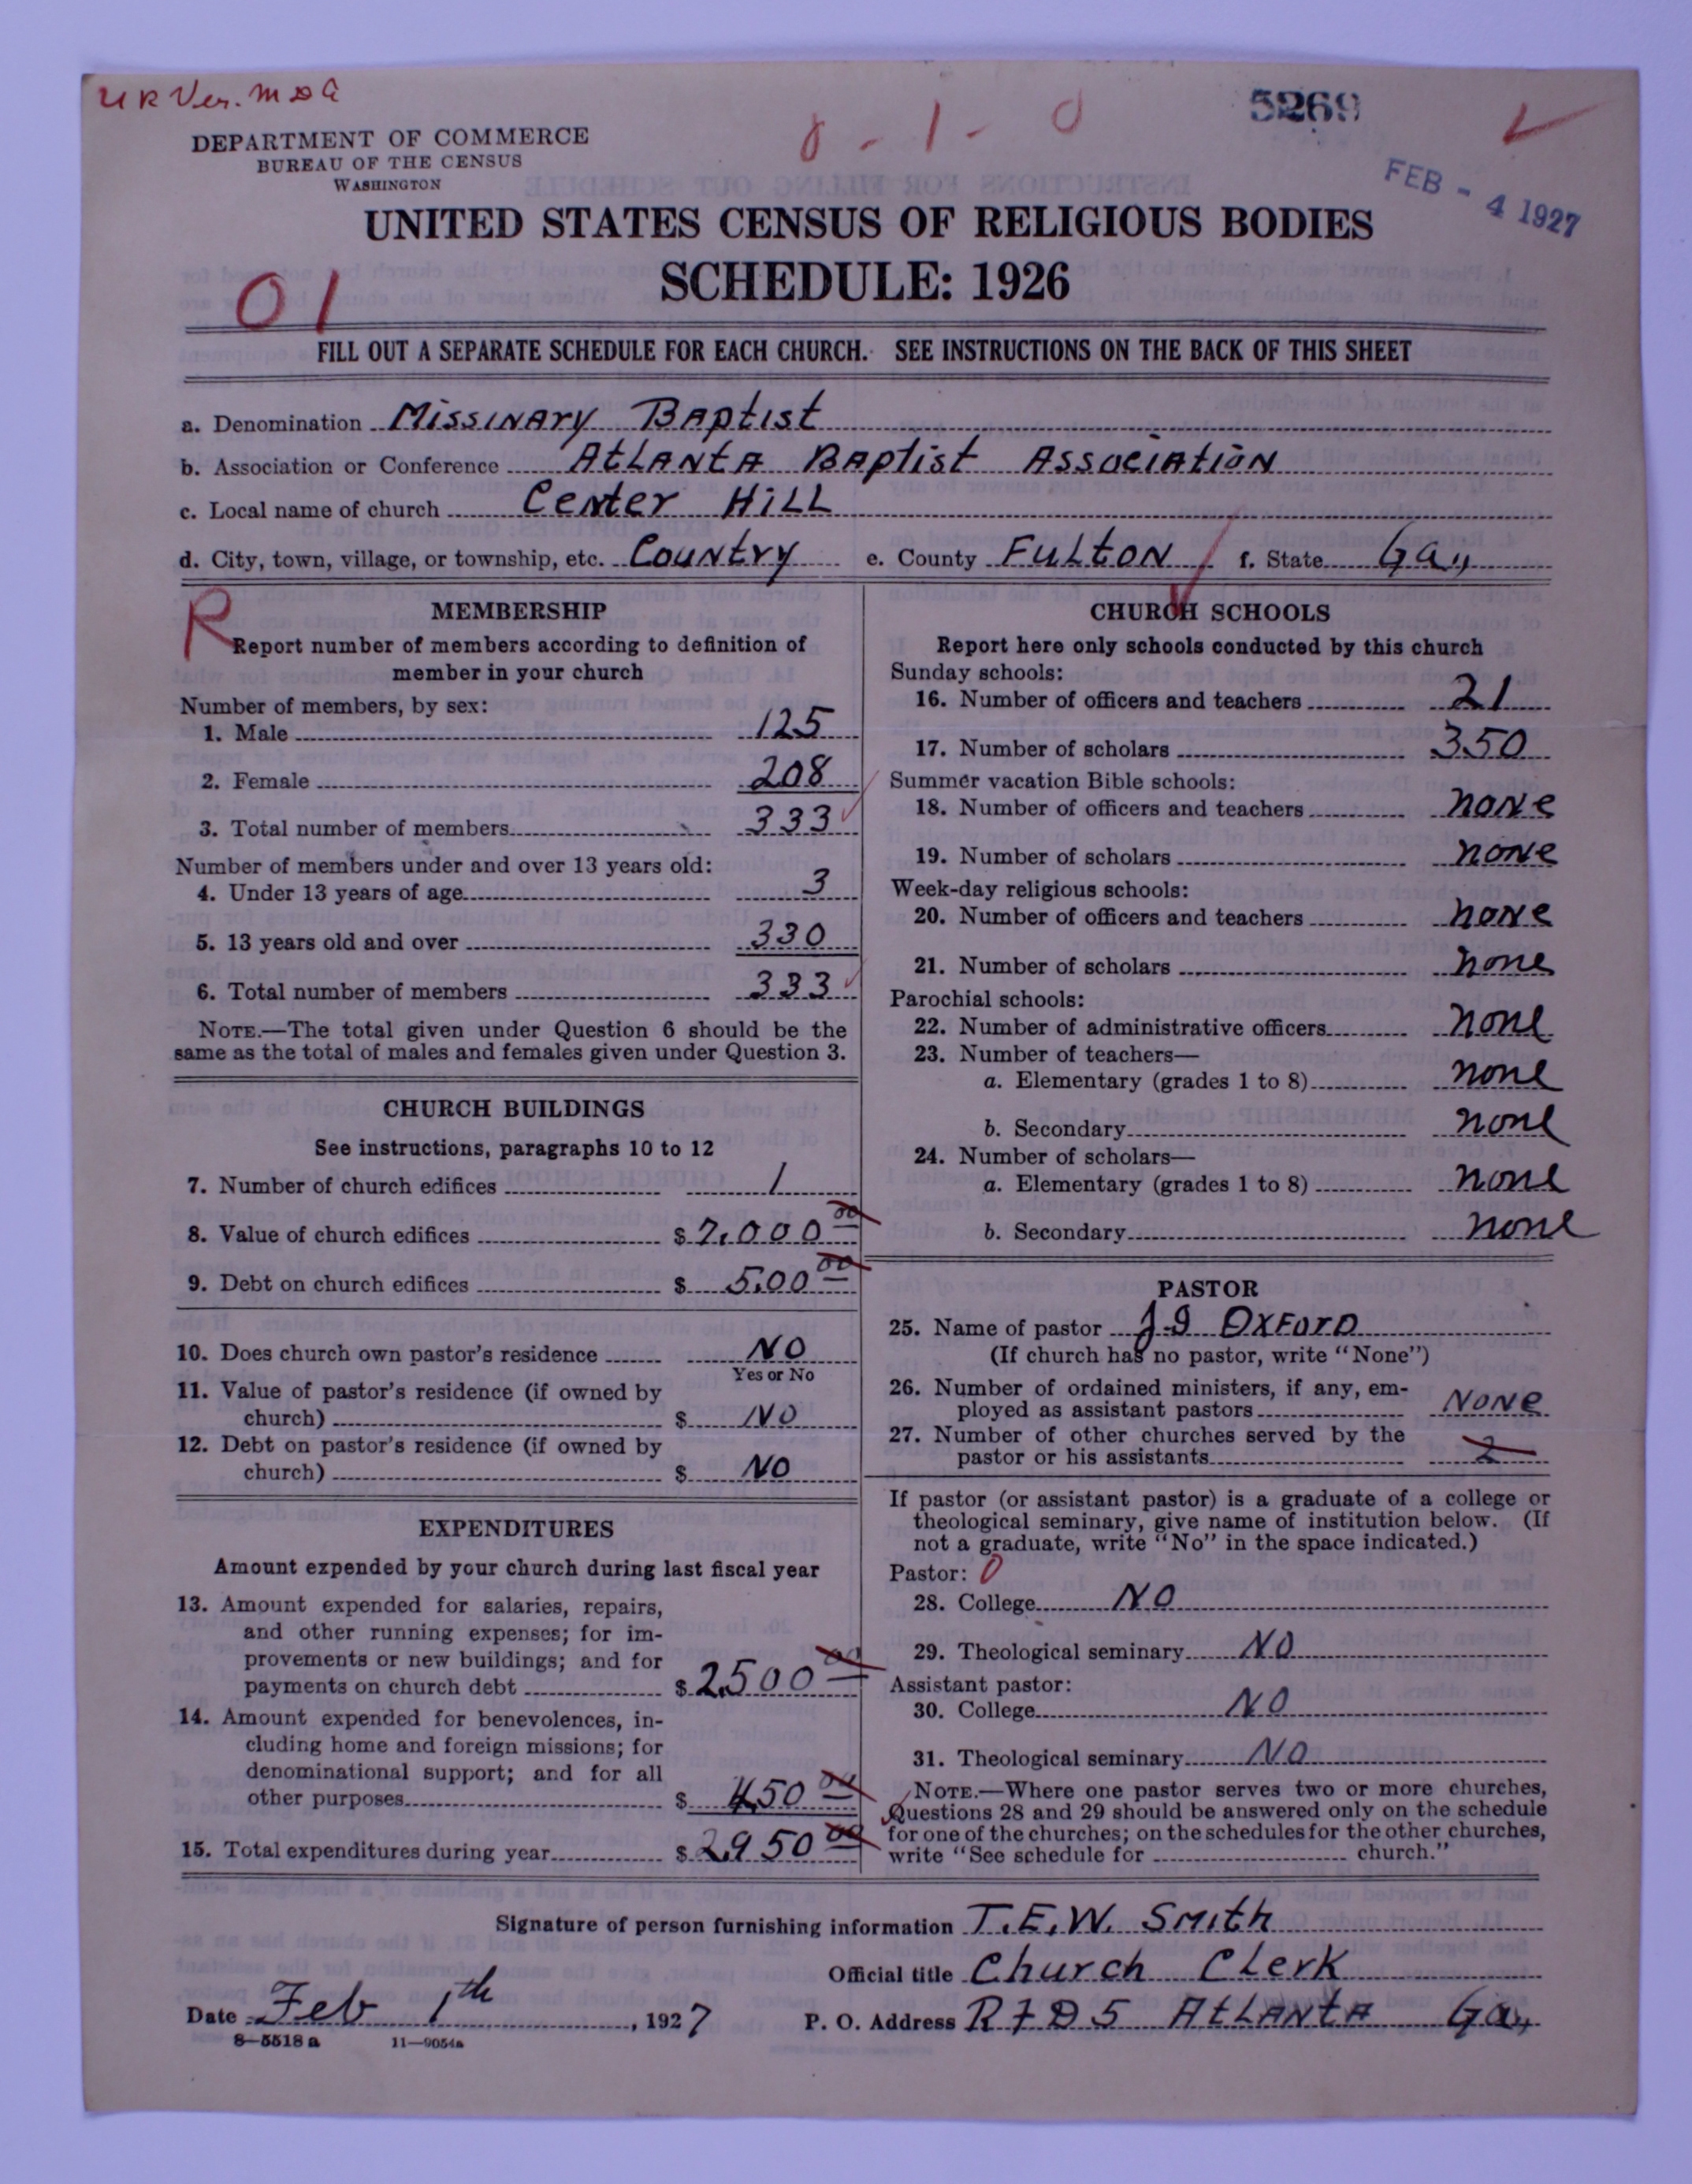 U R Ver. M D A
8 - 1 - 0
5269
DEPARTMENT OF COMMERCE
BUREAU OF THE CENSUS
WASHINGTON
FEB - 4 1927
UNITED STATES CENSUS OF RELIGIOUS BODIES
SCHEDULE: 1926
01
FILL OUT A SEPARATE SCHEDULE FOR EACH CHURCH. SEE INSTRUCTIONS ON THE BACK OF THIS SHEET
a. Denomination Missinary Baptist
b. Association or Conference Atlanta Baptist Association
c. Local name of church Center Hill
d. City, town, village, or township, etc. Country e. County Fulton f. State Ga,,
R
MEMBERSHIP
Report number of members according to definition of
member in your church
Number of members, by sex:
1. Male 125
2. Female 208
3. Total number of members 333
Number of members under and over 13 years old:
4. Under 13 years of age 3
5. 13 years old and over 330
6. Total number of members 333
NOTE.—The total given under Question 6 should be the
same as the total of males and females given under Question 3.
CHURCH BUILDINGS
See instructions, paragraphs 10 to 12
7. Number of church edifices 1
8. Value of church edifices $ 7,000 00
9. Debt on church edifices $ 500 00
10. Does church own pastor's residence NO
Yes or No
11. Value of pastor's residence (if owned by
church) $ NO
12. Debt on pastor's residence (if owned by
church) $ NO
EXPENDITURES
Amount expended by your church during last fiscal year
13. Amount expended for salaries, repairs,
and other running expenses; for im-
provements or new buildings; and for
payments on church debt $ 2,500 00
14. Amount expended for benevolences, in-
cluding home and foreign missions; for
denominational support; and for all
other purposes $ 450 00
15. Total expenditures during year $ 2,950 00
CHURCH SCHOOLS
Report here only schools conducted by this church
Sunday schools:
16. Number of officers and teachers 21
17. Number of scholars 350
Summer vacation Bible schools:
18. Number of officers and teachers none
19. Number of scholars none
Week-day religious schools:
20. Number of officers and teachers none
21. Number of scholars none
Parochial schools:
22. Number of administrative officers none
23. Number of teachers—
a. Elementary (grades 1 to 8) none
b. Secondary none
24. Number of scholars—
a. Elementary (grades 1 to 8) none
b. Secondary none
PASTOR
25. Name of pastor J I Oxford
(If church has no pastor, write "None")
26. Number of ordained ministers, if any, em-
ployed as assistant pastors None
27. Number of other churches served by the
pastor or his assistants 2
If pastor (or assistant pastor) is a graduate of a college or
theological seminary, give name of institution below. (If
not a graduate, write "No" in the space indicated.)
Pastor: 0
28. College NO
29. Theological seminary NO
Assistant pastor:
30. College NO
31. Theological seminary NO
NOTE.—Where one pastor serves two or more churches,
Questions 28 and 29 should be answered only on the schedule
for one of the churches; on the schedules for the other churches,
write "See schedule for church."
Signature of person furnishing information T.E.W. Smith
Official title Church Clerk
Date Feb 1th, 1927 P. O. Address RFD 5 Atlanta Ga,,
8—5518 a 11—9054a